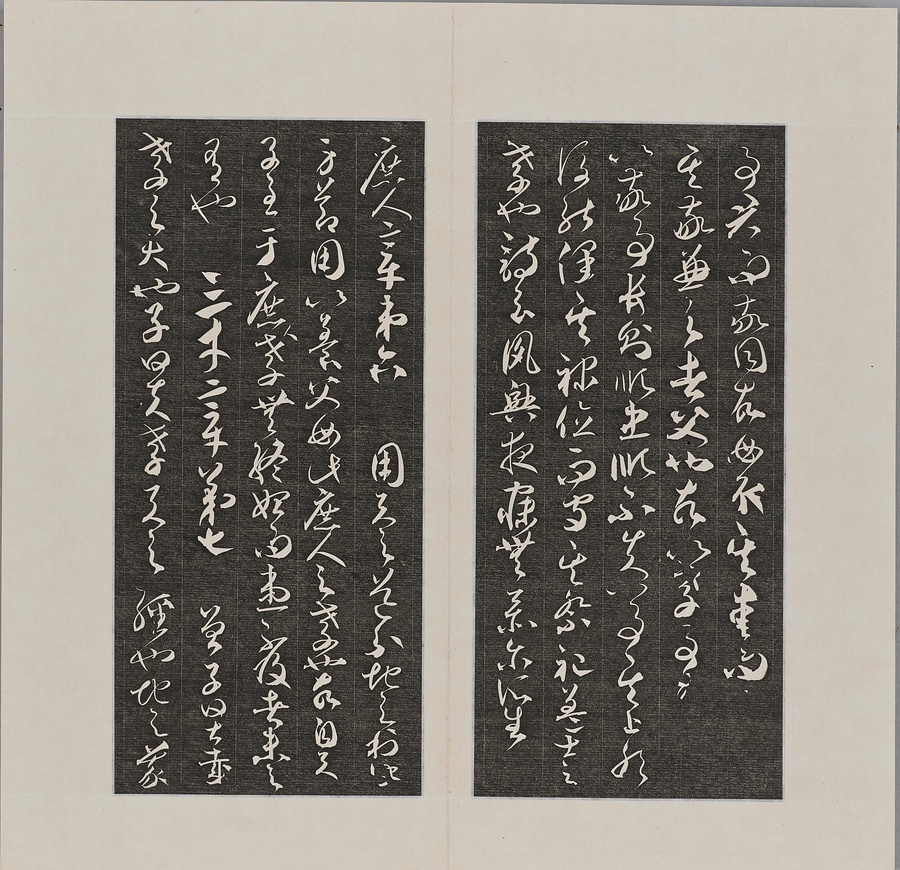 事君而敬同故母取其愛而
其敬兼之者父也故以孝事君
以敬事長則順忠順不失以事其上然
後能保其祿位而守其祭祀蓋士之
孝也詩云夙興夜寐無忝爾所生
庶人章第六 用天之道分地之利謹
身節用以養父母此庶人之孝也故自天
子至于庶人孝無終始而患不及者未之
有也 三才章第七 曾子曰甚哉
孝之大也子曰夫孝天之經也地之義